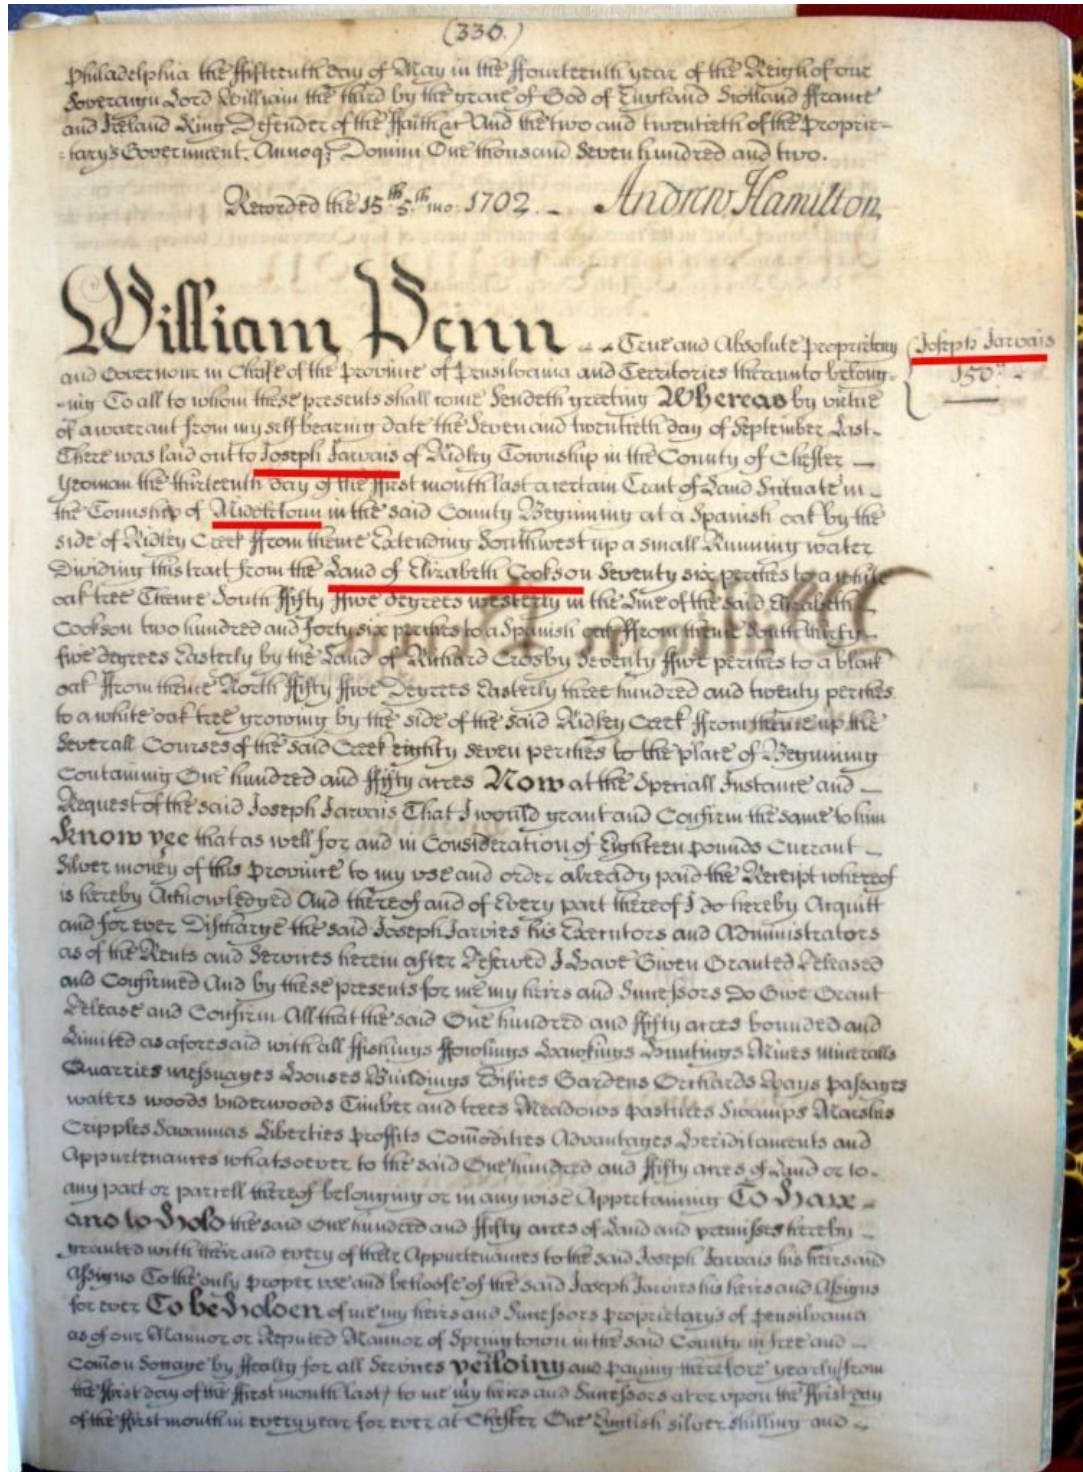 (336.)
Philadelphia the ffifteenth day of May in the ffourteenth year of the Reign of our
Soveraign Lord William the third by the grace of God of England Scotland ffrance
and Ireland King Defender of the ffaith &c And the two and twentieth of the Proprie-
:tary's Government. Annoq; Domini One thousand Seven hundred and two.
Recorded the 15th 5.th mo: 1702. _ Andrew Hamilton,
William Penn - - True and Absolute Proprietary
Joseph Jarvais
150
and Governour in Cheife of the Province of Pensilvania and Territories thereunto belong-
-ing To all to whom these presents shall come Sendeth greeting Whereas by virtue
of a warrant from my self bearing date the Seven and twentieth day of September Last_
There was laid out to Joseph Jarvais of Ridley Township in the County of Chester _
Yeoman the thirteenth day of the ffirst month last a certain Tract of Land Situate in _
the Township of Midletown in the said County Beginning at a Spanish oak by the
side of Ridley Creek ffrom thence Extending Southwest up a small Running water
Dividing this tract from the Land of Elizabeth Cookson Seventy six perches to a white
oak tree Thence South ffifty ffive degrees westerly in the Line of the said Elizabeth
Cookson two hundred and forty six perches to a Spanish oak ffrom thence South thirty_
five degrees Easterly by the Land of Richard Crosby Seventy ffive perches to a black
oak ffrom thence North ffifty ffive Degrees Easterly three hundred and twenty perches
to a white oak tree growing by the side of the said Ridley Creek ffrom thence up the
Severall Courses of the said Creek eighty seven perches to the place of Beginning
Containing One hundred and ffifty acres Now at the Speciall Instance and _
Request of the said Joseph Jarvais That I would grant and Confirm the same to him
Know yee that as well for and in Consideration of Eighteen pounds Currant _
Silver money of this Province to my use and order already paid the Receipt whereof
is hereby Acknowledged And thereof and of Every part thereof I do hereby Acquitt
and for ever Discharge the said Joseph Jarvies his Executors and Administrators
as of the Rents and Services herein after Reserved I Have Given Granted Released
and Confirmed And by these presents for me my heirs and Successors Do Give Grant
Release and Confirm All that the said One hundred and ffifty acres bounded and
Limited as aforesaid with all ffishings ffowlings Hawkings Huntings Mines mineralls
Quarries messuages Houses Buildings Edifices Gardens Orchards Ways passages
waters woods underwoods Timber and trees Meadows pastures Swamps Marshes
Cripples Savannas Liberties proffits Com̄odities Advantages Hereditaments and
Appurtenances whatsoever to the said One hundred and ffifty acres of Land or to_
any part or parcell thereof belonging or in any wise Appertaining To Have _
and to Hold the said One hundred and ffifty acres of Land and premisses hereby _
granted with their and every of their Appurtenances to the said Joseph Jarvais his heirs and
Assigns To the only proper use and behoofe of the said Joseph Jarvies his heirs and Assigns
for ever To be Holden of me my heirs and Successors proprietary's of Pensilvania
as of our Mannor or Reputed Mannor of Springtown in the said County in free and _
Com̄on Soccage by ffealty for all Services yeilding and paying therefore yearly from
the ffirst day of the ffirst month last, to me my heirs and Successors at or upon the ffirst day
of the ffirst month in every year for ever at Chester One English silver shilling and _